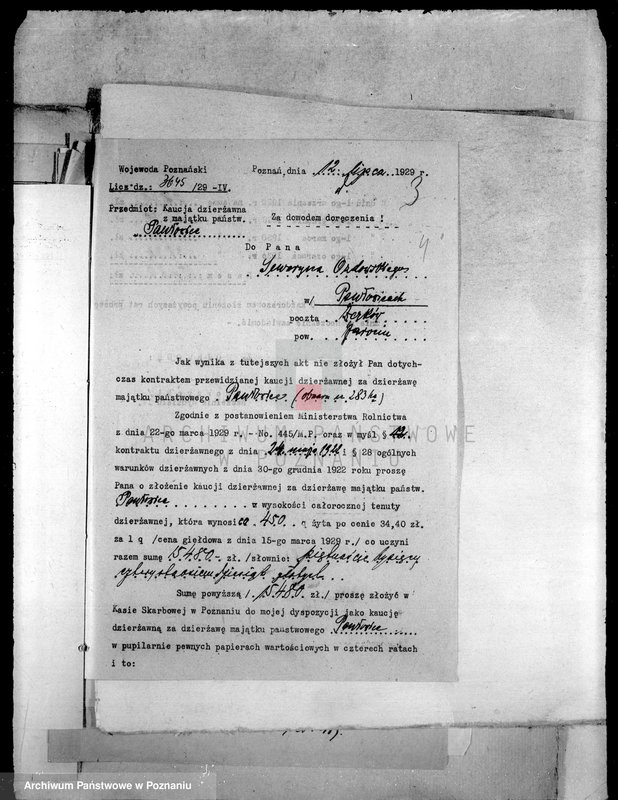 Wojewoda Poznański
Poznań, dnia 12. lipca 1929 r.
Licz dz.: 3645 /29 -IV.
3
Przedmiot: Kaucja dzierżawna
z majątku państw.
Pawłowice
Za dowodem doręczenia !
Do Pana
Seweryna
w/ Pawłowicach
poczta Żerków
pow. Jarocin
Jak wynika z tutejszych akt nie złożył Pan dotych-
czas kontraktem przewidzianej kaucji dzierżawnej za dzierżawę
majątku państwowego Pawłowice (obszaru 283 ha)
Zgodnie z postanowieniem Ministerstwa Rolnictwa
z dnia 22-go marca 1929 r. - No. 445/M.P. oraz w myśl § 12.
kontraktu dzierżawnego z dnia 24 maja 1922 i § 28 ogólnych
warunków dzierżawnych z dnia 30-go grudnia 1922 roku proszę
Pana o złożenie kaucji dzierżawnej za dzierżawę majątku państw.
Pawłowice w wysokości całorocznej tenuty
dzierżawnej, która wynosi ca 450 q żyta po cenie 34,40 zł.
za 1 q /cena giełdowa z dnia 15-go marca 1929 r./ co uczyni
razem sumę 15.480- zł. /słownie: piętnaście tysięcy
czterystaosiemdziesiąt złotych
Sumę powyższą /. 15.480 zł./ proszę złożyć w
Kasie Skarbowej w Poznaniu do mojej dyspozycji jako kaucję
dzierżawną za dzierżawę majątku państwowego Pawłowice
w pupilarnie pewnych papierach wartościowych w czterech ratach
i to:
ARCHIWUM PAŃSTWOWE
W POZNANIU
Archiwum Państwowe w Poznaniu